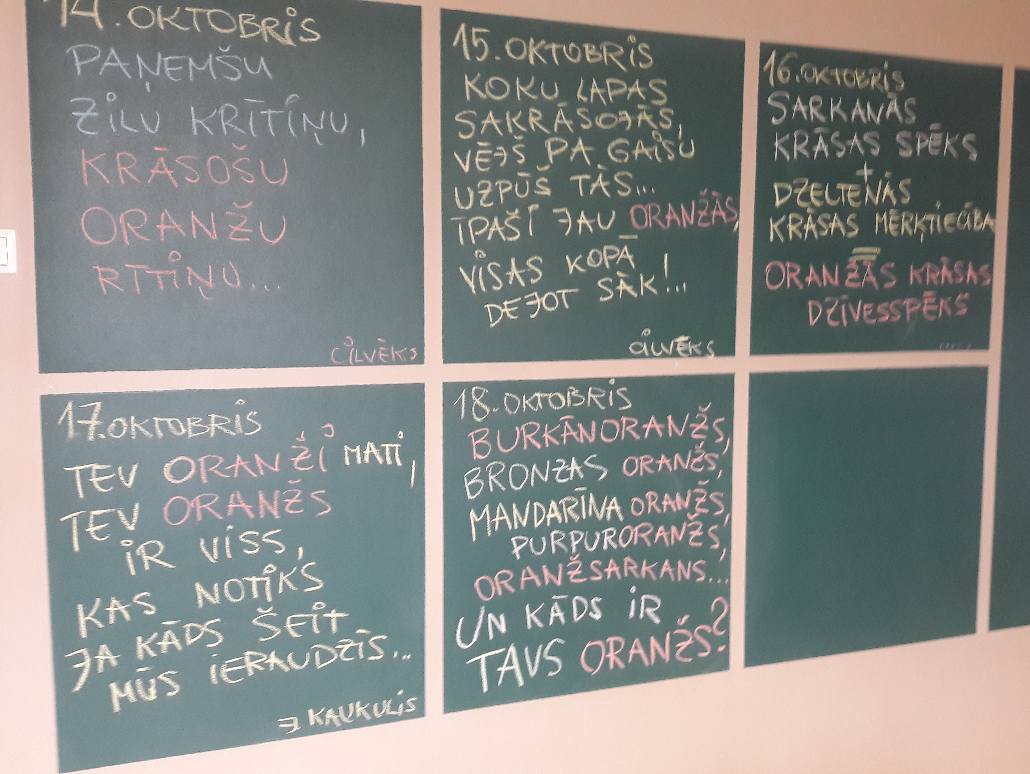 14. OKTOBRIS
PAŅEMŠU
ZILU KRĪTIŅU,
KRĀSOŠU
ORANŽU
RĪTIŅU...
CILVĒKS
15. OKTOBRIS
KOKU LAPAS
SAKRĀSOJĀS,
VĒJŠ PA GAISU
UZPŪŠ TĀS...
ĪPAŠI JAU ORANŽĀS,
VISAS KOPĀ
DEJOT SĀK!...
CILVĒKS
16. OKTOBRIS
SARKANĀS
KRĀSAS SPĒKS
+
DZELTENĀS
KRĀSAS MĒRĶTIECĪBA
=
ORANŽĀS KRĀSAS
DZĪVESSPĒKS
.....
17. OKTOBRIS
TEV ORANŽI MATI,
TEV ORANŽS
IR VISS,
KAS NOTIKS
JA KĀDS ŠEIT
MŪS IERAUDZĪS...
J KAUKULIS
18. OKTOBRIS
BURKĀNORANŽS,
BRONZAS ORANŽS,
MANDARĪNA ORANŽS,
PURPURORANŽS,
ORANŽSARKANS...
UN KĀDS IR
TAVS ORANŽS?